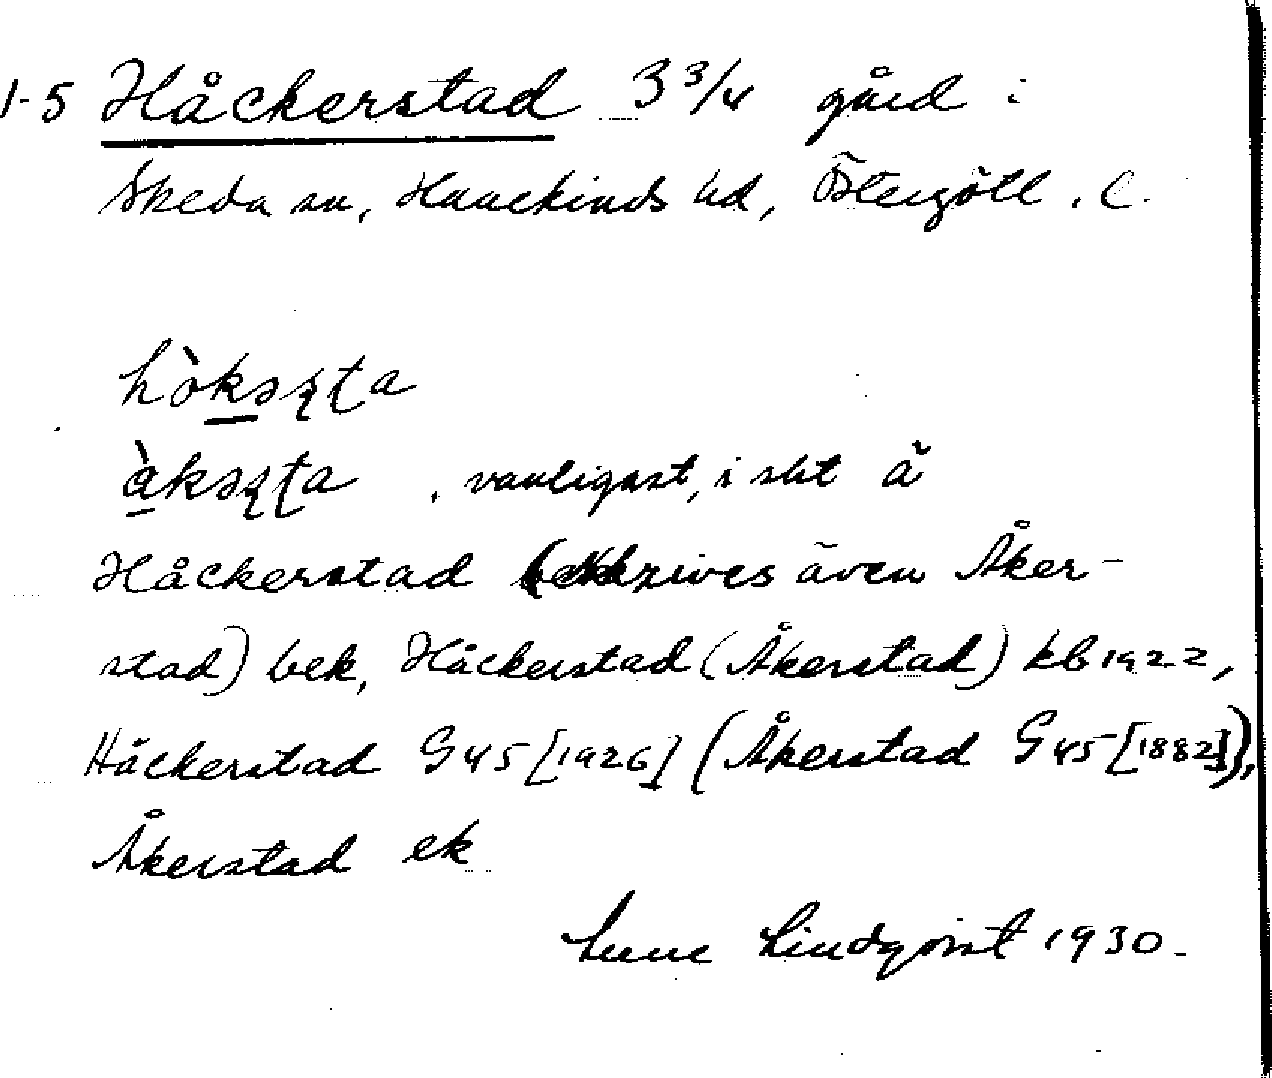 1-5 Håckerstad 3 3/4 gård i
Skeda sn, Hanekinds hd, Östergötl. l.
hòkəʂʈa
àkəʂʈa, vanligast, i sht ä
Håckerstad (skrives även Åker-
stad) bek, Håckerstad (Åkerstad) kb 1922,
Håckerstad G45 [1926] (Åkerstad G45 [1882]),
Åkerstad ek
Lindqvist 1930.